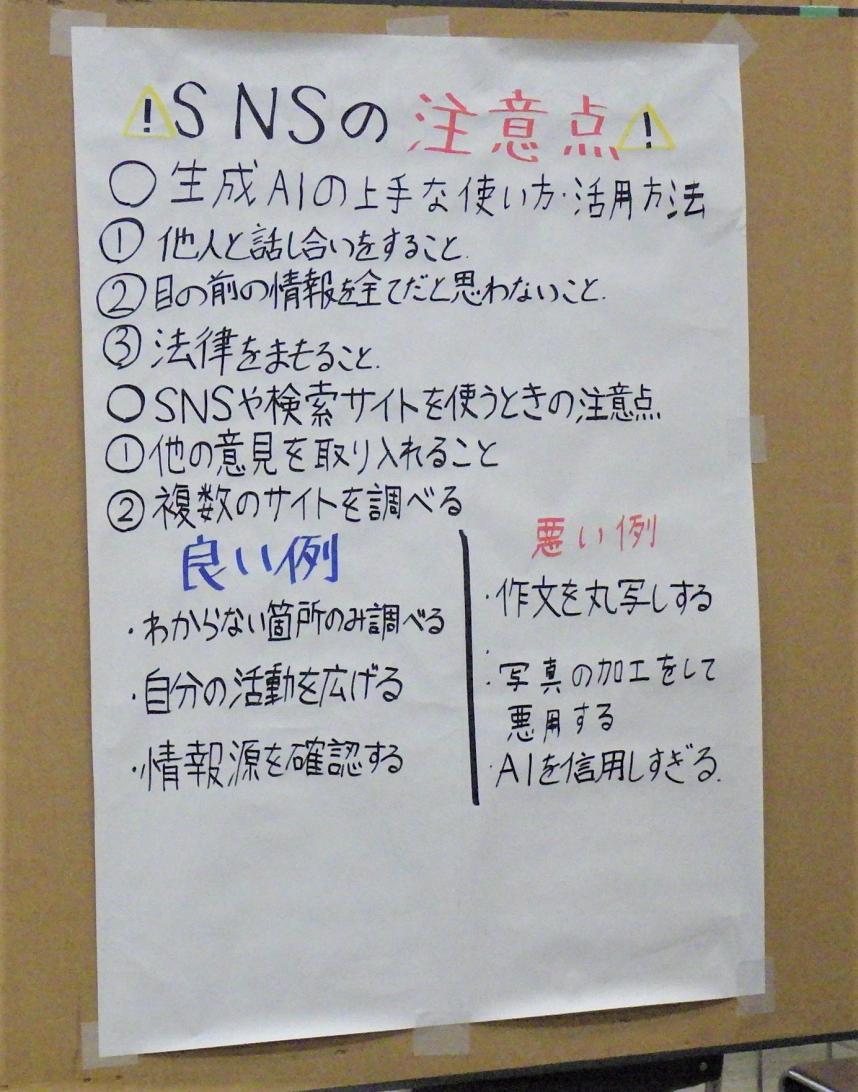 !SNSの注意点!
○生成AIの上手な使い方・活用方法
①他人と話し合いをすること.
②目の前の情報を全てだと思わないこと.
③法律をまもること.
○SNSや検索サイトを使うときの注意点
①他の意見を取り入れること
②複数のサイトを調べる
良い例
・わからない箇所のみ調べる
・自分の活動を広げる
・情報源を確認する
悪い例
・作文を丸写しする
・写真の加工をして
悪用する
・AIを信用しすぎる.